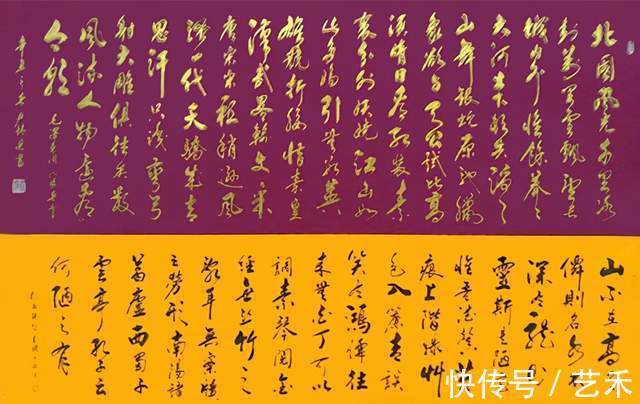 北国风光千里冰
封万里雪飘望长
城内外惟馀莽莽
大河上下顿失滔滔
山舞银蛇原驰腊
象欲与天公试比高
须晴日看红装素
裹分外妖娆江山如
此多娇引无数英
雄竞折腰惜秦皇
汉武略输文采
唐宗宋祖稍逊风
骚一代天骄成吉
思汗只识弯弓
射大雕俱往矣数
风流人物还看
今朝
山不在高
仙則名水不在
深有龙则
灵斯是陋
惟吾德馨苔
痕上阶绿草
色入帘青谈
笑有鸿儒往
来无白丁可以
調素琴阅金
经无丝竹之
乱耳无案牍
之劳形南陽諸
葛廬西蜀子
雲亭孔子云
何陋之有
快传号/艺禾